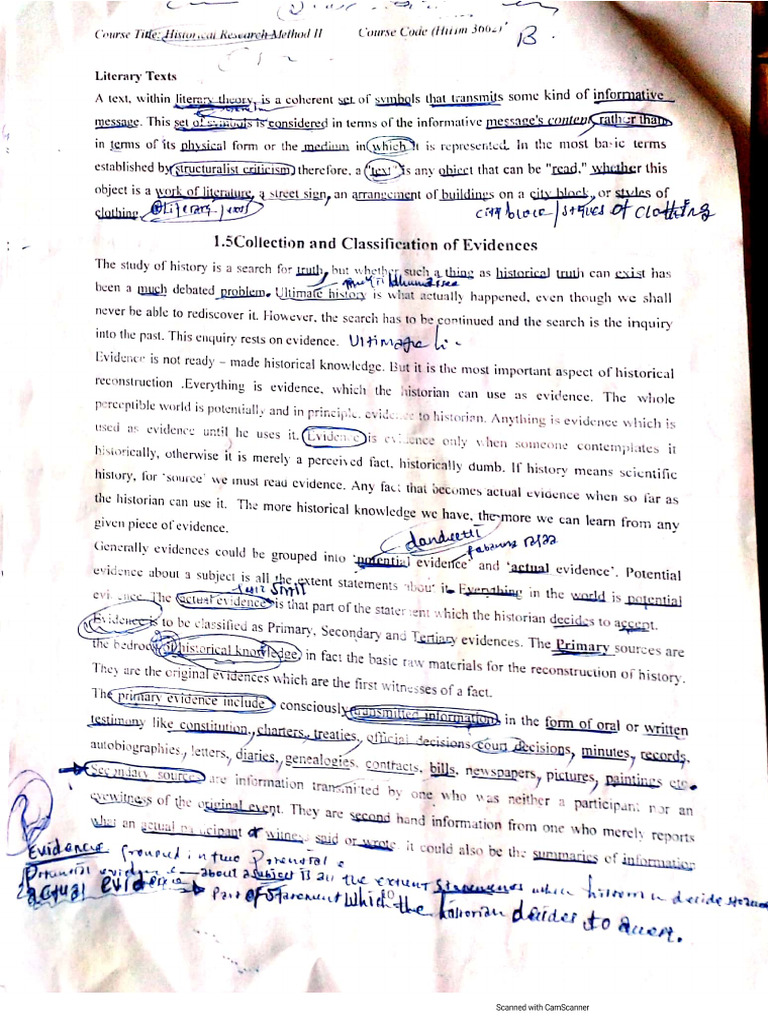 Course Title: Historical Research Method II Course Code (Hism 3662)
B
Literary Texts
A text, within literary theory, is a coherent set of symbols that transmits some kind of informative
message. This set of symbols is considered in terms of the informative message's content, rather than
in terms of its physical form or the medium in which it is represented. In the most basic terms
established by structuralist criticism, therefore, a "text" is any object that can be "read," whether this
object is a work of literature, a street sign, an arrangement of buildings on a city block, or styles of
clothing.
city block / styles of clothing
1.5Collection and Classification of Evidences
The study of history is a search for truth, but whether such a thing as historical truth can exist has
been a much debated problem. Ultimate history is what actually happened, even though we shall
never be able to rediscover it. However, the search has to be continued and the search is the inquiry
into the past. This enquiry rests on evidence.
Evidence is not ready – made historical knowledge. But it is the most important aspect of historical
reconstruction .Everything is evidence, which the historian can use as evidence. The whole
perceptible world is potentially and in principle, evidence to historian. Anything is evidence which is
used as evidence until he uses it. Evidence is evidence only when someone contemplates it
historically, otherwise it is merely a perceived fact, historically dumb. If history means scientific
history, for 'source' we must read evidence. Any fact that becomes actual evidence when so far as
the historian can use it. The more historical knowledge we have, the more we can learn from any
given piece of evidence.
Generally evidences could be grouped into 'potential evidence' and 'actual evidence'. Potential
evidence about a subject is all the extent statements about it. Everything in the world is potential
evidence. The actual evidence is that part of the statement which the historian decides to accept.
Evidence is to be classified as Primary, Secondary and Tertiary evidences. The Primary sources are
the bedroom of historical knowledge, in fact the basic raw materials for the reconstruction of history.
They are the original evidences which are the first witnesses of a fact.
The primary evidence include consciously transmitted information in the form of oral or written
testimony like constitution, charters, treaties, official decisions court decisions, minutes, records,
autobiographies, letters, diaries, genealogies, contracts, bills, newspapers, pictures, paintings etc.
Secondary source are information transmitted by one who was neither a participant nor an
eyewitness of the original event. They are second hand information from one who merely reports
what an actual participant or witness said or wrote. it could also be the summaries of information
Evidence grouped in two Potential
Potential evidence – about a subject is all the extent statements which historian decide
2 actual evidence Part of statement which the historian decides to
Scanned with CamScanner